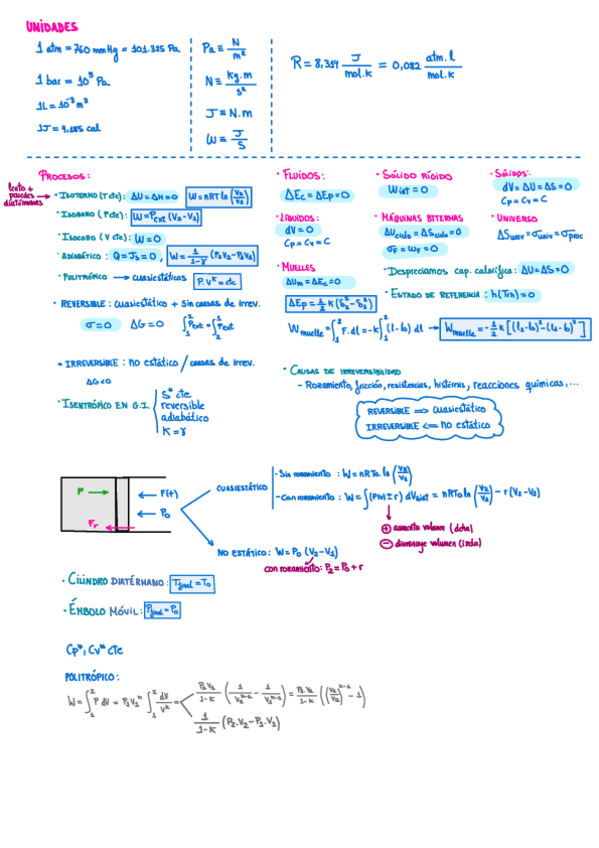 UNIDADES
1 atm = 760 mmHg = 101.325 Pa
1 bar = 10⁵ Pa
1L = 10⁻³ m³
1J = 4,185 cal
Pa ≡ N/m²
N ≡ Kg.m/s²
J ≡ N.m
W ≡ J/s
R = 8,314 J/mol.K = 0,082 atm.l/mol.K
PROCESOS:
lento + paredes diatérmanas
· ISOTERMO (T cte): ΔU = ΔH = 0 W = nRT ln (V₂/V₁)
· ISOBARO (P cte): W = Pext (V₂ - V₁)
· ISOCORO (V cte): W = 0
· ADIABÁTICO: Q = Js = 0, W = 1/(1-γ) (P₂V₂ - P₁V₁)
· POLITRÓPICO → cuasiestáticos P.Vᴷ = cte
· REVERSIBLE: cuasiestático + sin causas de irrev.
σ = 0 ΔG = 0
· IRREVERSIBLE: no estático / causas de irrev.
ΔG < 0
· ISENTRÓPICO EN G.I.
S* cte
reversible
adiabático
K = γ
· FLUIDOS:
ΔEc = ΔEp = 0
· LÍQUIDOS:
dV = 0
Cp = Cv = C
· MUELLES
ΔUm = ΔEc = 0
· SÓLIDO RÍGIDO
Wdist = 0
· MÁQUINAS BITERMAS
ΔUciclo = ΔSciclo = 0
σF = WF = 0
· SÓLIDOS:
dV = ΔU = ΔS = 0
Cp = Cv = C
· UNIVERSO
ΔSuniv = σuniv = σproc
· Despreciamos cap. calorífica: ΔU = ΔS = 0
· ESTADO DE REFERENCIA: h(Trn) = 0
· CAUSAS DE IRREVERSIBILIDAD
- Rozamiento, fricción, resistencias, histéresis, reacciones químicas, ...
REVERSIBLE => cuasiestático
IRREVERSIBLE <= no estático
P
F(+)
P₀
Fr
CUASIESTÁTICO
· Sin rozamiento: W = nRT₀ ln (V₂/V₁)
- Con rozamiento: W = ∫(PM ± r) dVdist = nRT₀ ln (V₂/V₁) - r (V₂ - V₁)
⊕ aumenta volumen (dcha)
⊖ disminuye volumen (izda)
NO ESTÁTICO: W = P₀ (V₂ - V₁)
con rozamiento: P₂ = P₀ + r
· CILINDRO DIATÉRMANO: Tfinal = T₀
· ÉMBOLO MÓVIL: Pfinal = P₀
Cp*, Cv* cte
POLITRÓPICO:
1/(1-K) (P₂.V₂ - P₁.V₁)